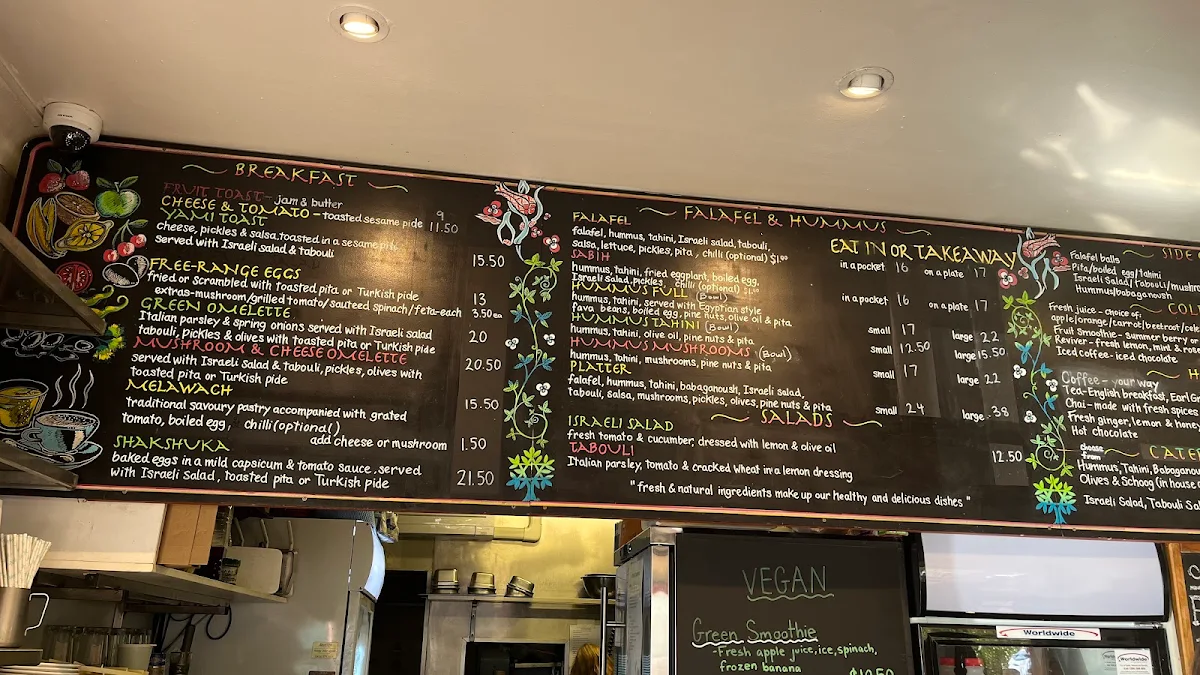 BREAKFAST
FRUIT TOAST - jam & butter 9
CHEESE & TOMATO - toasted sesame pide 11.50
YAMI TOAST
cheese, pickles & salsa, toasted in a sesame pide
served with Israeli salad & tabouli 15.50
FREE-RANGE EGGS
fried or scrambled with toasted pita or Turkish pide 13
extras-mushroom/grilled tomato/sauteed spinach/feta-each 3.50ea
GREEN OMELETTE
Italian parsley & spring onions served with Israeli salad 20
tabouli, pickles & olives with toasted pita or Turkish pide
MUSHROOM & CHEESE OMELETTE
served with Israeli salad & tabouli, pickles, olives with 20.50
toasted pita or Turkish pide
MELAWACH
traditional savoury pastry accompanied with grated 15.50
tomato, boiled egg, chilli (optional)
add cheese or mushroom 1.50
SHAKSHUKA
baked eggs in a mild capsicum & tomato sauce, served
with Israeli Salad, toasted pita or Turkish pide 21.50
FALAFEL & HUMMUS
EAT IN OR TAKEAWAY
FALAFEL
falafel, hummus, tahini, Israeli salad, tabouli,
salsa, lettuce, pickles, pita, chilli (optional) $1.00
in a pocket 16 on a plate 17
SABIH
hummus, tahini, fried eggplant, boiled egg,
Israeli salad, pickles chilli (optional)
in a pocket 16 on a plate 17
HUMMUS FULL (Bowl)
hummus, tahini, served with Egyptian style
fava beans, boiled egg, pine nuts, olive oil & pita
small 17 large 22
HUMMUS TAHINI (Bowl)
hummus, tahini, olive oil, pine nuts & pita
small 12.50 large 15.50
HUMMUS MUSHROOMS (Bowl)
hummus, tahini, mushrooms, pine nuts & pita
small 17 large 22
PLATTER
falafel, hummus, tahini, babaganoush, Israeli salad,
tabouli, salsa, mushrooms, pickles, olives, pine nuts & pita
small 24 large 38
SALADS
ISRAELI SALAD
fresh tomato & cucumber, dressed with lemon & olive oil
TABOULI 12.50
Italian parsley, tomato & cracked wheat in a lemon dressing
"fresh & natural ingredients make up our healthy and delicious dishes"
SIDE
Falafel balls
Pita/boiled egg/tahini
Israeli Salad/tabouli/
Hummus/babaganoush
COL
Fresh juice - choice of:
apple/orange/carrot/beetroot/
Fruit Smoothie - summer berry or
Reviver - fresh lemon, mint &
Iced coffee - iced chocolate
H
Coffee - your way
Tea-English breakfast, Earl
Chai - made with fresh spices
Fresh ginger, lemon & honey
Hot chocolate
choose from
CATE
Hummus, Tahini,
Olives & Schoog (in house
Israeli Salad, Tabouli
VEGAN
Green Smoothie
-Fresh apple juice, ice, spinach,
frozen banana
$10.50
Worldwide
Worldwide